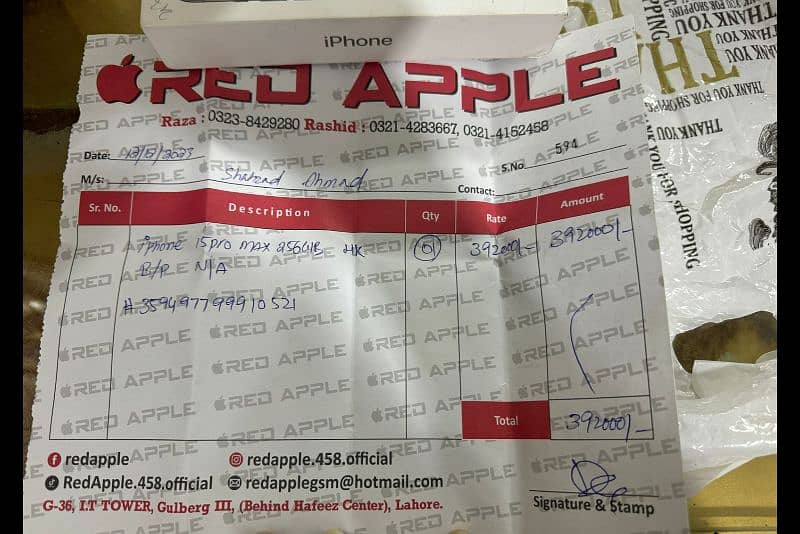 iPhone
RED APPLE
Raza : 0323-8429280 Rashid : 0321-4283667, 0321-4152458
Date: S.No. 594
M/s: Ahmad Contact:
Sr. No. Description Qty Rate Amount
iphone 15pro max 256GB HK 01 392000/- 392000/-
B/P N/A
#359497799910521
Total 392000/-
redapple redapple.458.official
RedApple.458.official redapplegsm@hotmail.com
G-36, I.T TOWER, Gulberg III, (Behind Hafeez Center), Lahore.
Signature & Stamp
THANK YOU
THANK YOU FOR SHOPPING